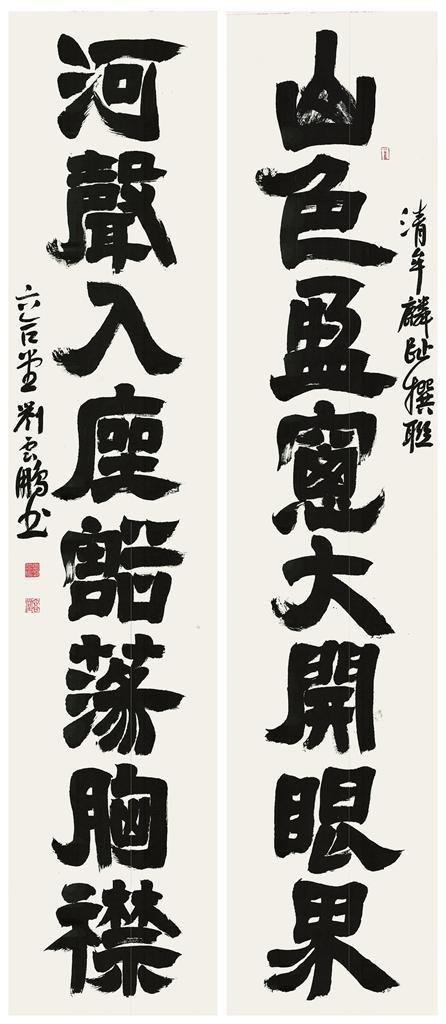 山色盈窻大開眼界
清牟麟趾撰聯
河聲入座豁蕩胸襟
六石堂劉雲鵬书